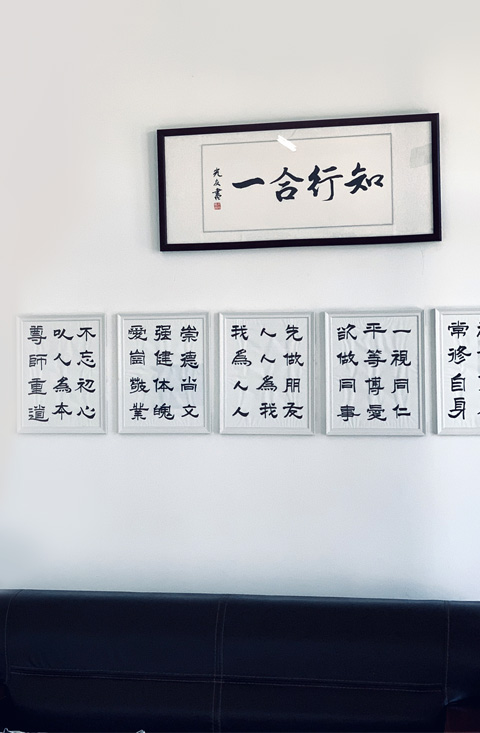 知行合一
光友書
常修自身
一視同仁
平等博愛
欲做同事
先做朋友
人人為我
我為人人
崇德尚文
强健体魄
愛崗敬業
不忘初心
以人為本
尊師重道